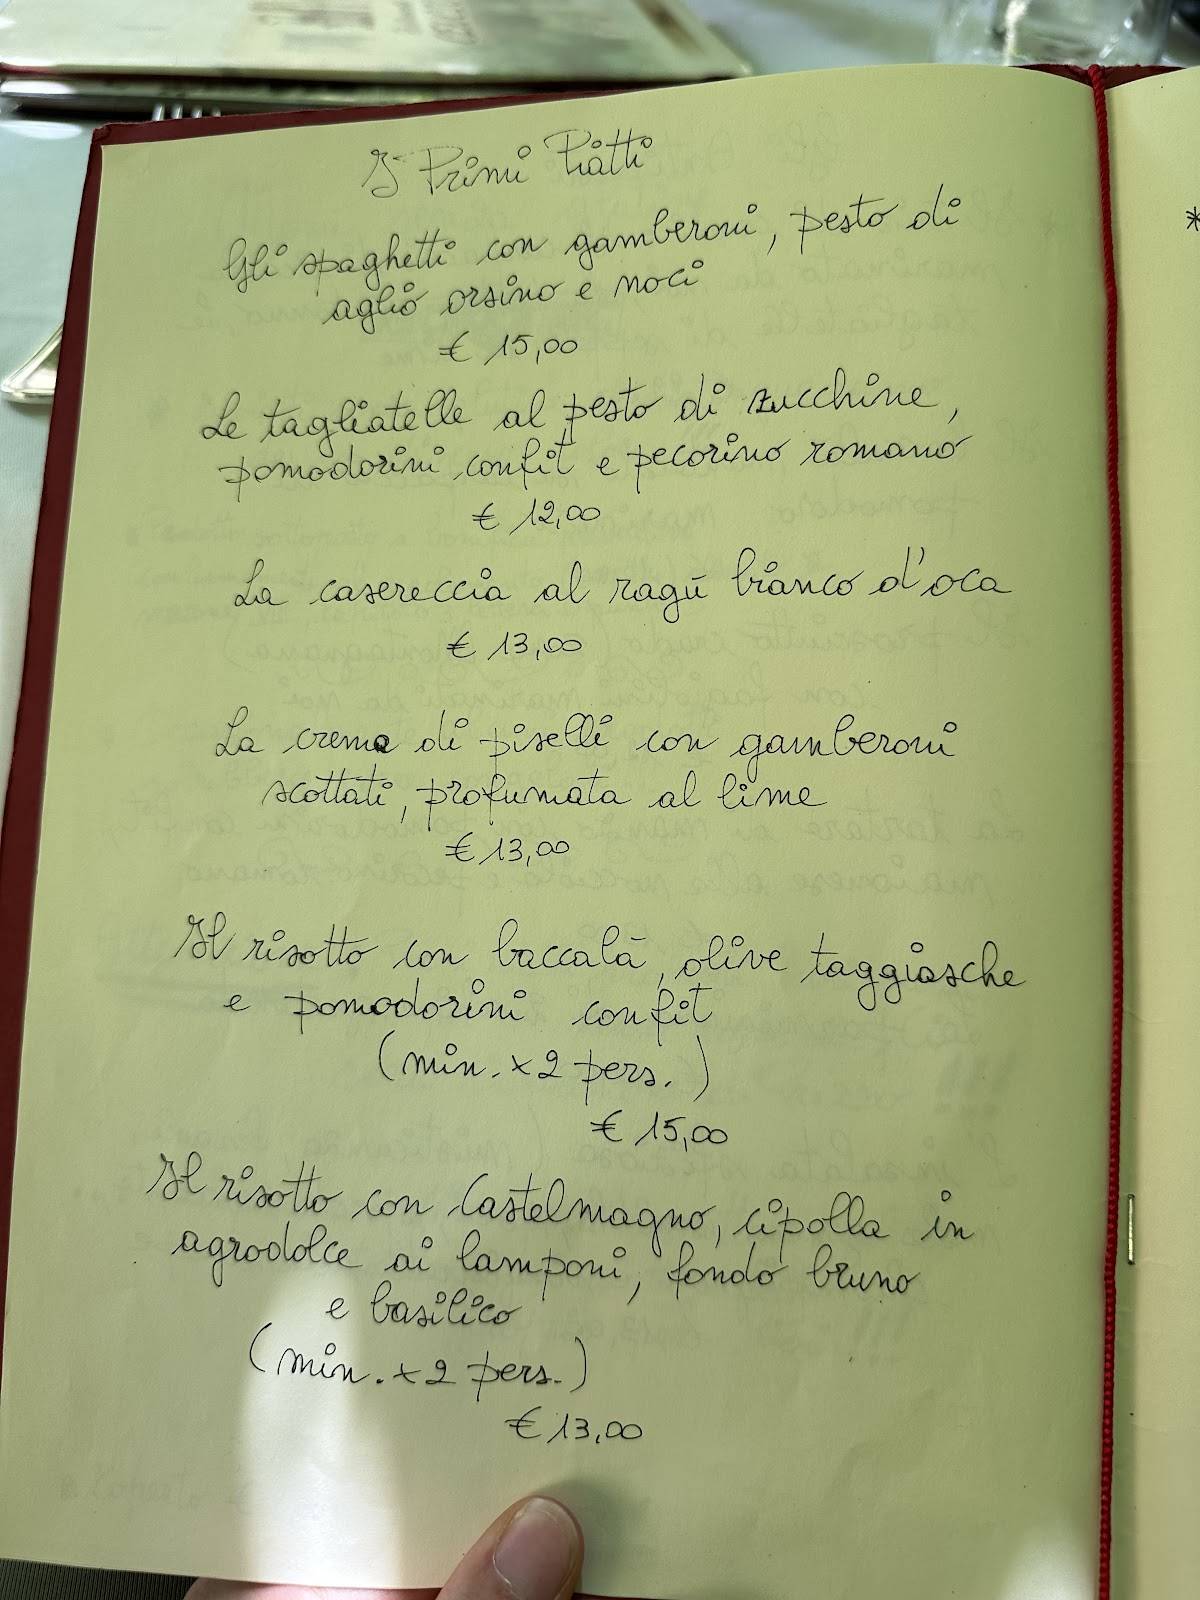 I Primi Piatti
Gli spaghetti con gamberoni, pesto di
aglio orsino e noci
€ 15,00
Le tagliatelle al pesto di zucchine,
pomodorini confit e pecorino romano
€ 12,00
La casereccia al ragù bianco d'oca
€ 13,00
La crema di piselli con gamberoni
scottati, profumata al lime
€ 13,00
Il risotto con baccalà, olive taggiasche
e pomodorini confit
(min. x 2 pers.)
€ 15,00
Il risotto con Castelmagno, cipolla in
agrodolce ai lamponi, fondo bruno
e basilico
(min. x 2 pers.)
€ 13,00
*